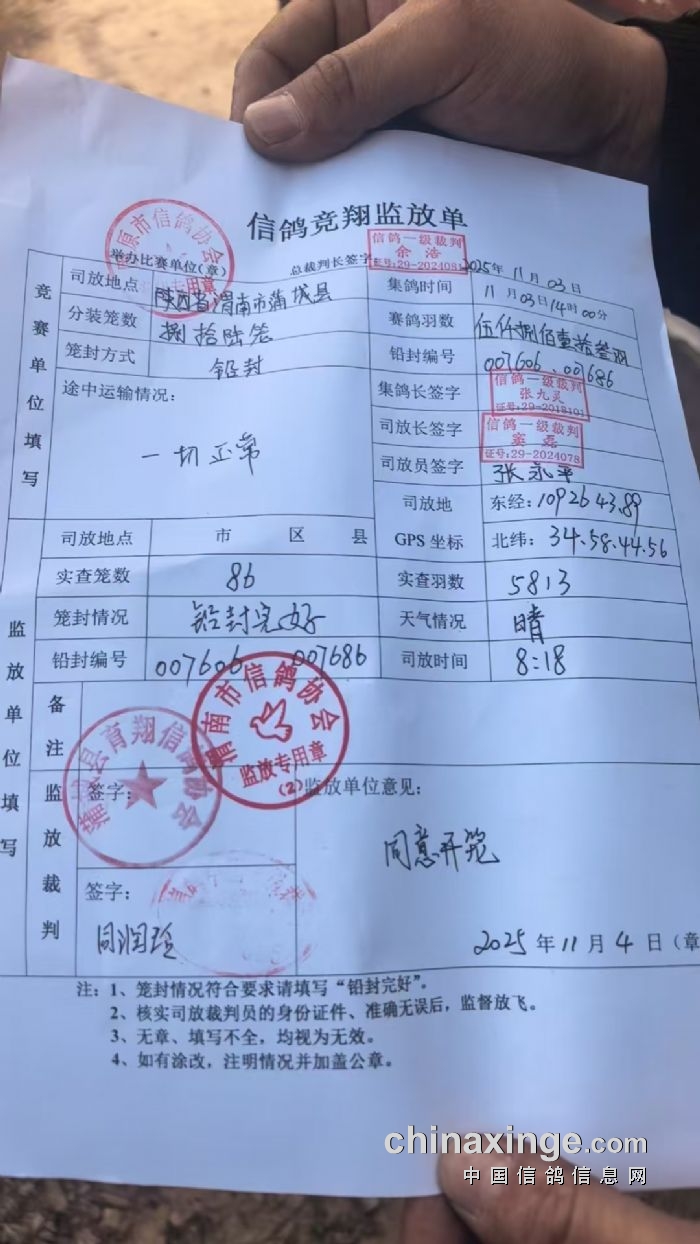 信鸽竞翔监放单
原市信鸽协会
专用章
举办比赛单位(章)
总裁判长签字
信鸽一级裁判
余浩
证号:29-2024081
2025年11月03日
竞赛单位填写
司放地点
陕西省渭南市蒲城县
集鸽时间
11月03日14时00分
分装笼数
捌拾陆笼
赛鸽羽数
伍仟捌佰壹拾叁羽
笼封方式
铅封
铅封编号
007606、007686
途中运输情况:
一切正常
集鸽长签字
信鸽一级裁判
张九灵
证号:29-2018101
司放长签字
信鸽一级裁判
窦磊
证号:29-2024078
司放员签字
张永平
司放地
GPS坐标
东经:1092643.89
北纬:34.58.44.56
监放单位填写
司放地点
市 区 县
实查笼数
86
实查羽数
5813
笼封情况
铅封完好
天气情况
晴
铅封编号
007606 007686
司放时间
8:18
备注
渭南市信鸽协会
监放专用章
(2)
蒲城县育翔信鸽协会
监放裁判
签字:
签字:
同润玲
监放单位意见:
同意开笼
2025年11月4日(章
注:1、笼封情况符合要求请填写“铅封完好”。
2、核实司放裁判员的身份证件、准确无误后,监督放飞。
3、无章、填写不全,均视为无效。
4、如有涂改,注明情况并加盖公章。
chinaxinge.com
中国信鸽信息网